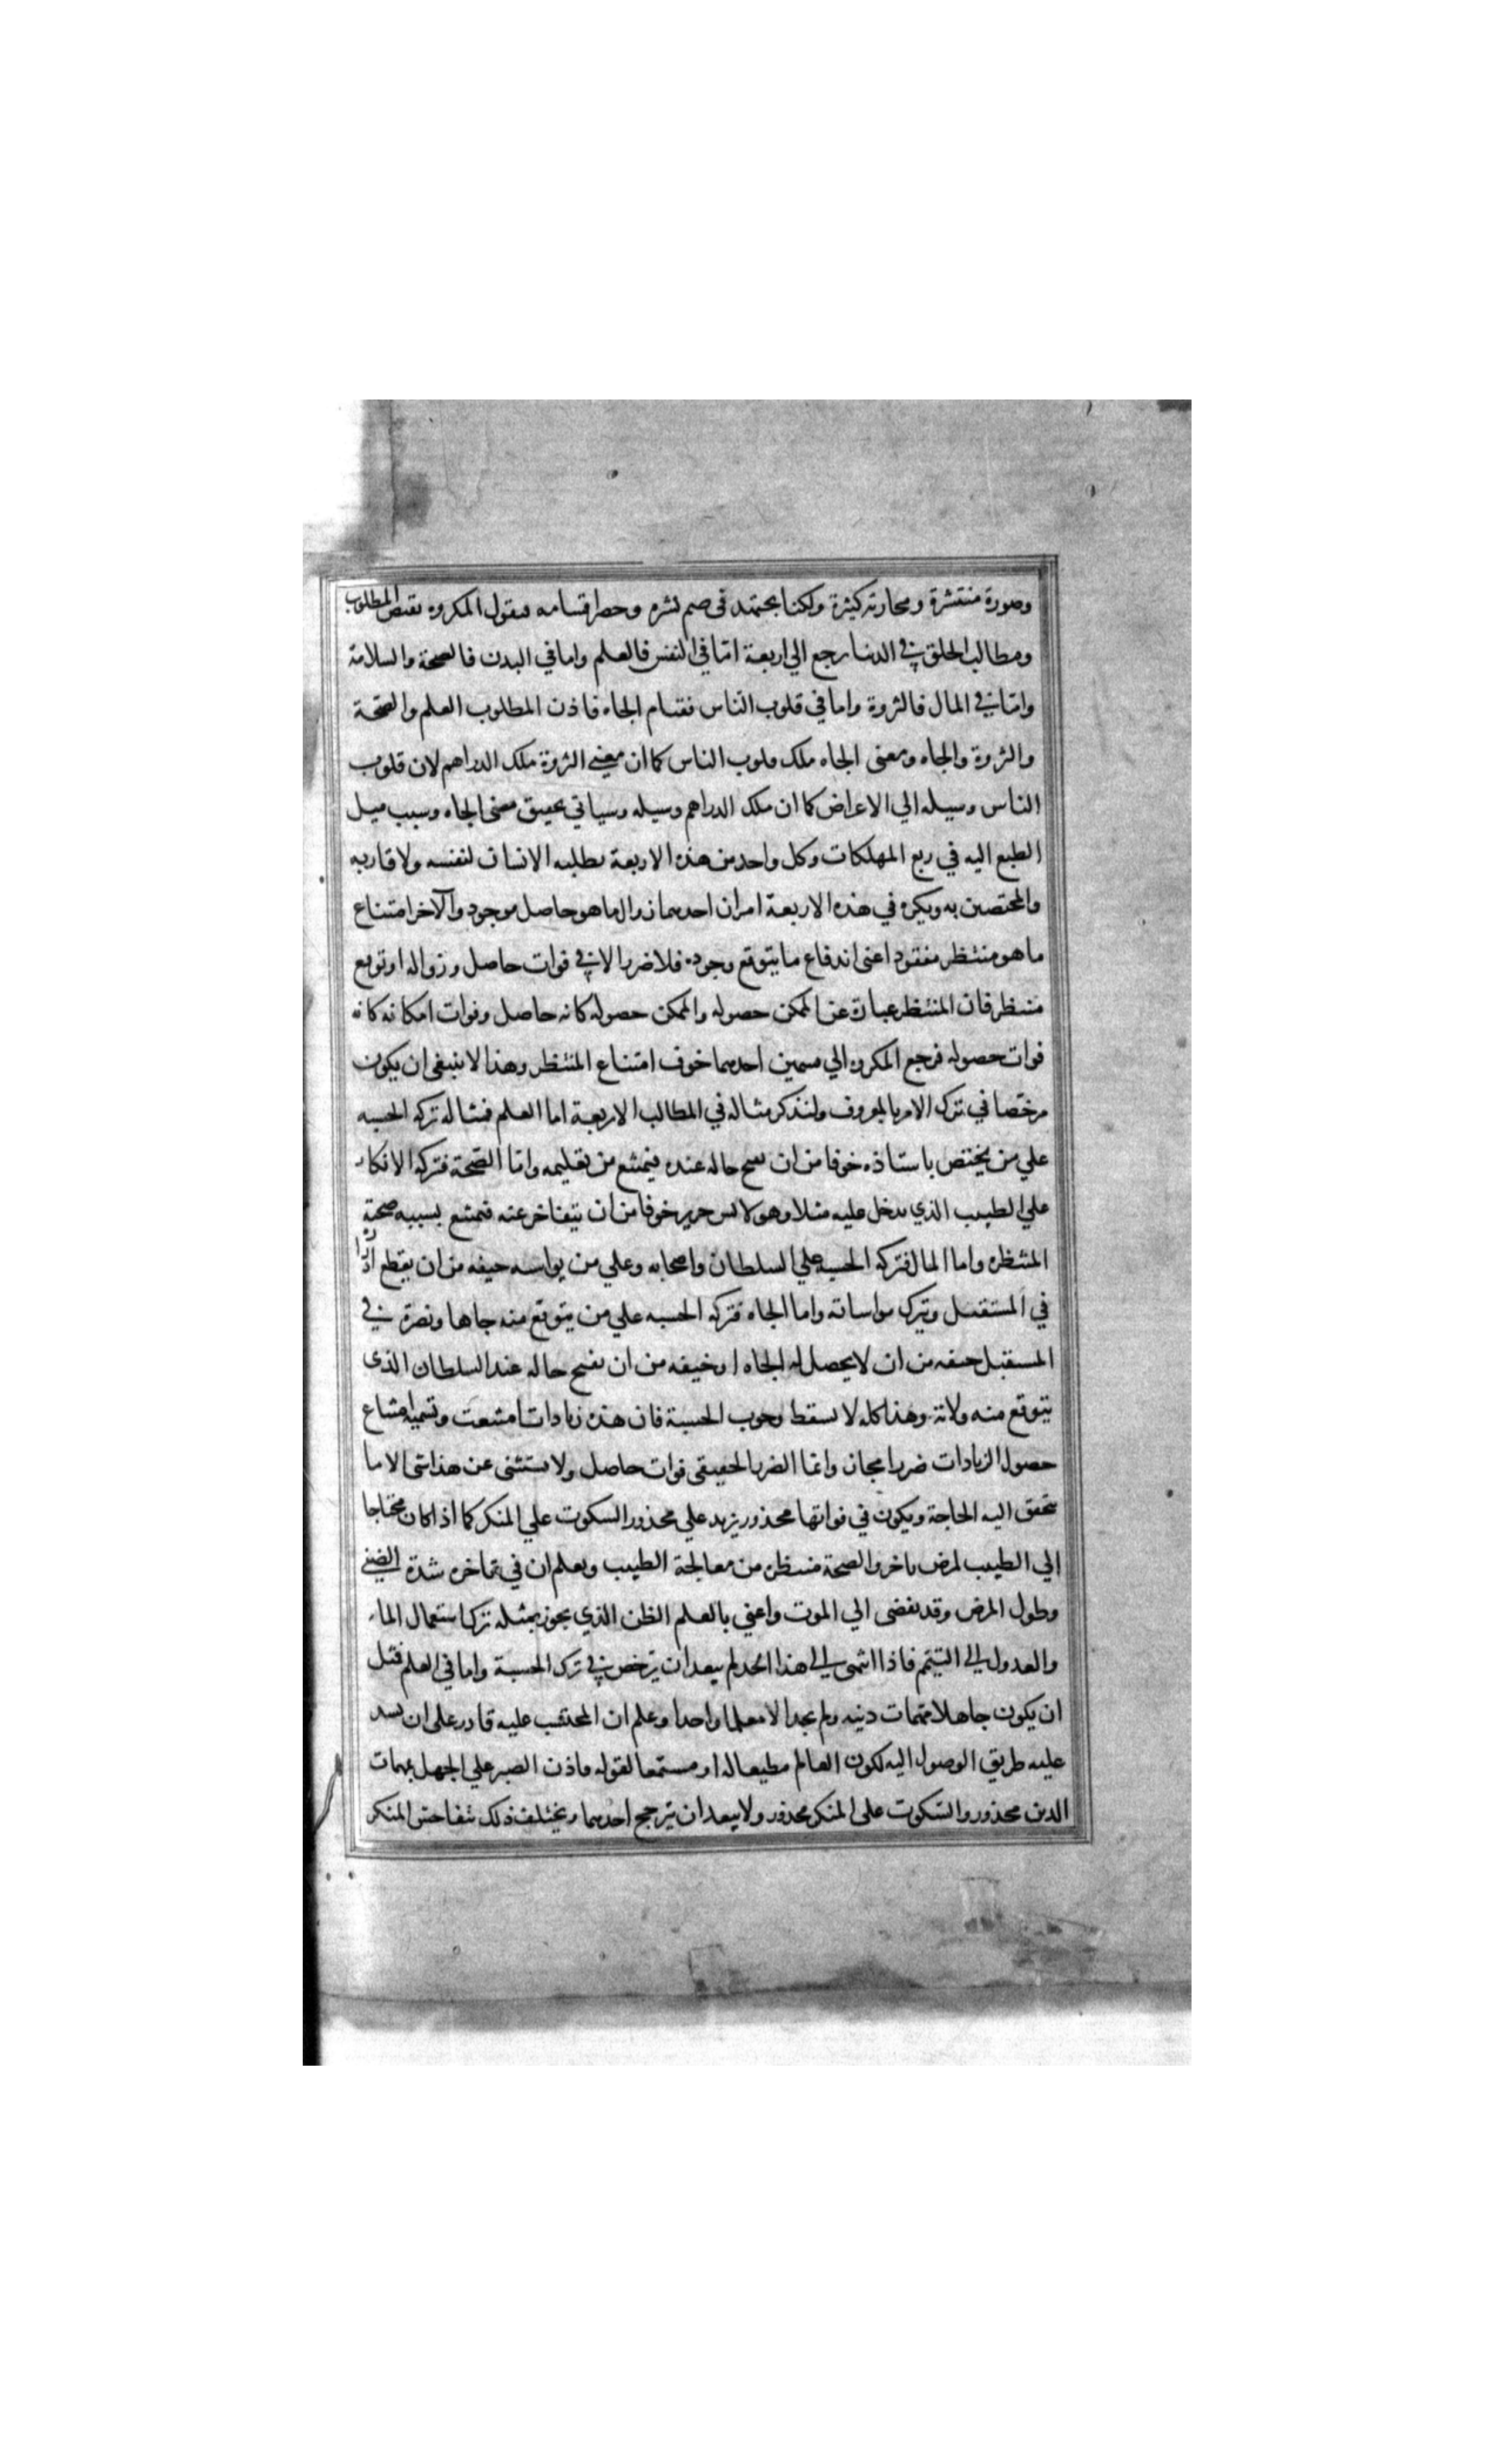 وصورة منتشرة ومجارته كثيرة ولكنا نجتهد في ضم نشره وحصر اقسامه فنقول المكروه نقيض المطلوب
ومطالب الخلق في الدنيا يرجع الي اربعة امّا في النفس فالعلم واما في البدن فالصحة والسلامة
وامّا في المال فالثروة واما في قلوب الناس فقيام الجاه فاذن المطلوب العلم والصّحة
والثروة والجاه ومعنى الجاه ملك قلوب الناس كما ان معني الثروة ملك الدراهم لان قلوب
الناس وسيله الي الاعراض كما ان ملك الدراهم وسيله وسياتي تحقيق معنى الجاه وسبب ميل
الطبع اليه في ربع المهلكات وكل واحد من هذه الاربعة يطلبه الانسان لنفسه ولاقاربه
والمختصين به ويكره في هذه الاربعة امران احدهما زوال ما هو حاصل موجود والآخر امتناع
ما هو منتظر مفقود اعنى اندفاع ما يتوقع وجوده فلا ضرر الا في فوات حاصل وزواله او توقع
منتظر فان المنتظر عبارة عن الممكن حصوله والممكن حصوله كانه حاصل وفوات امكانه كانه
فوات حصوله فرجع المكروه الي قسمين احدهما خوف امتناع المنتظر وهذا لا ينبغى ان يكون
مرخّصا في ترك الامر بالمعروف ولنذكر مثاله في المطالب الاربعة اما العلم فمثاله تركه الحسبه
علي من يختص باستاذه خوفا من ان يقبح حاله عنده فيمتنع من تعليمه وامّا الصّحة فتركه الانكار
علي الطبيب الذي يدخل عليه مثلا وهو لابس حرير خوفا من ان يتفاخر عنه فتمتنع بسببه صحّة
المنتظره واما المال فتركه الحسبه علي السلطان واصحابه وعلي من يواسيه خيفه من ان يقطع
في المستقبل وترك مواساته واما الجاه فتركه الحسبه علي من يتوقع منه جاها ونصرة في
المستقبل خيفه من ان لا يحصل له الجاه او خيفه من ان يقبح حاله عند السلطان الذى
يتوقع منه ولاية وهذا كله لا يسقط وجوب الحسبة فان هذه زيادات امتنعت وتسمية امتناع
حصول الزيادات ضررا مجاز وانما الضرر الحقيقى فوات حاصل ولا يستثنى عن هذا شى الا ما
تحقق اليه الحاجة ويكون في فواتها محذور يزيد علي محذور السكوت علي المنكر كما اذا كان محتاجا
الي الطبيب لمرض ناخر والصحة منتظره من معالجة الطبيب ويعلم ان في تاخره شدة الضني
وطول المرض وقد يفضى الي الموت واعني بالعلم الظن الذي يجوز بمثله ترك استعمال الماء
والعدول الي التيمّم فاذا انتهى الي هذا الحد لم يبعد ان يرخص في ترك الحسبة واما في العلم فمثل
ان يكون جاهلا مهمات دينه ولم يجد الا معلما واحدا وعلم ان المحتسب عليه قادر على ان يسد
عليه طريق الوصول اليه لكون العالم مطيعا له او مستمعا لقوله فاذن الصبر علي الجهل بمهمات
الدين محذور والسّكوت على المنكر محذور ولا يبعد ان يترجح احدهما ويختلف ذلك بتفاحش المنكر